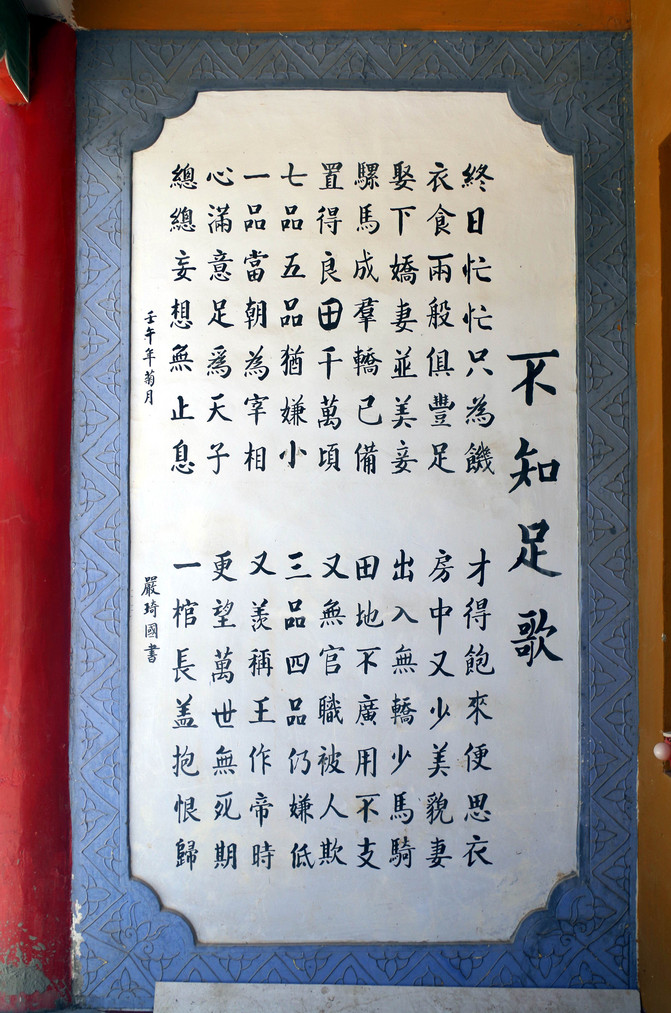 不知足歌
終日忙忙只為饑 才得飽來便思衣
衣食兩般俱豐足 房中又少美貌妻
娶下嬌妻並美妾 出入無轎少馬騎
騾馬成羣轎已備 田地不廣用不支
置得良田千萬頃 又無官職被人欺
七品五品猶嫌小 三品四品仍嫌低
一品當朝為宰相 又羨稱王作帝時
心滿意足爲天子 更望萬世無死期
總總妄想無止息 一棺長蓋抱恨歸
壬午年菊月 嚴琦國書